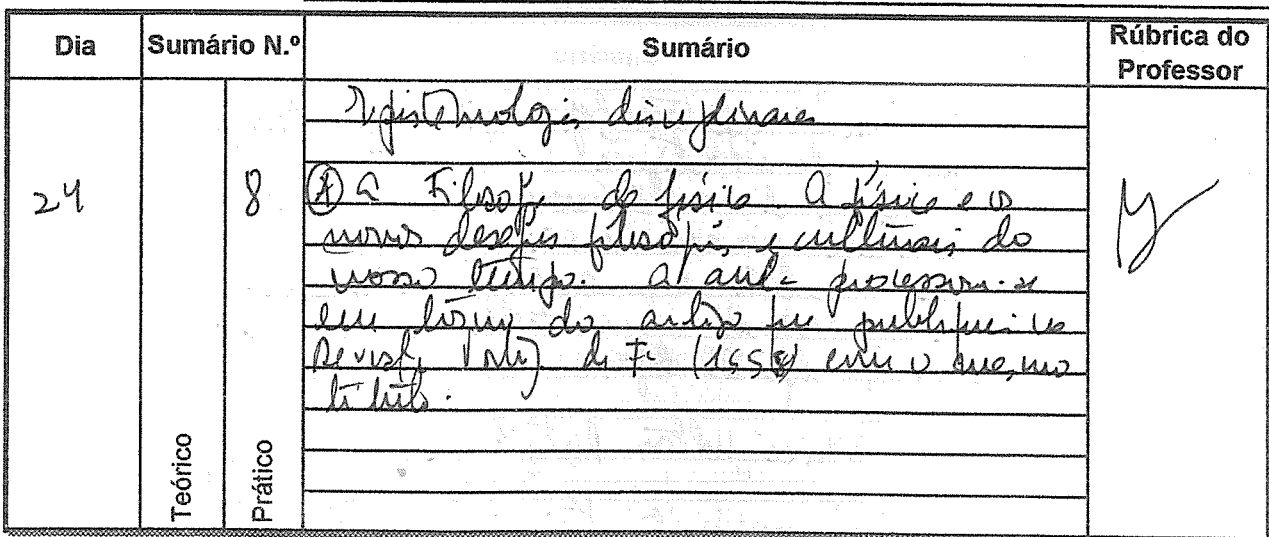 Dia Sumário N.º Sumário Rúbrica do Professor
Epistemologias disciplinares
24 8 (A) A Filosofia da física. A física e os
novos desafios filosóficos e culturais do
nosso tempo. A aula processou-se
em torno do artigo que publiquei na
Revista Port. de F. (1998) com o mesmo
título.
Teórico Prático